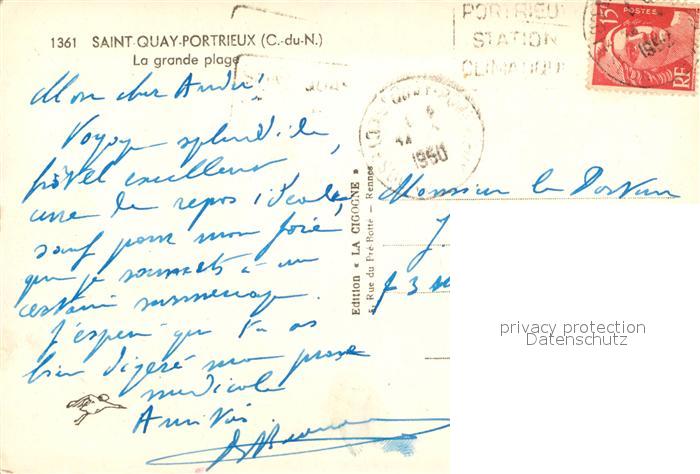 1361 SAINT-QUAY-PORTRIEUX (C.-du-N.)
La grande plage
PORTRIEUX
STATION
CLIMATIQUE
15F
POSTES
RF
1950
1950
Mon cher André,
Voyage splendide,
hôtel excellent,
cure de repos idéale,
sauf pour mon foie
que je soumets à un
certain surmenage.
J'espère que tu as
bien digéré mon
médicale
Amitiés
Edition « LA CIGOGNE »
5, Rue du Pré-Botté - Rennes
Monsieur le
J.
73
privacy protection
Datenschutz